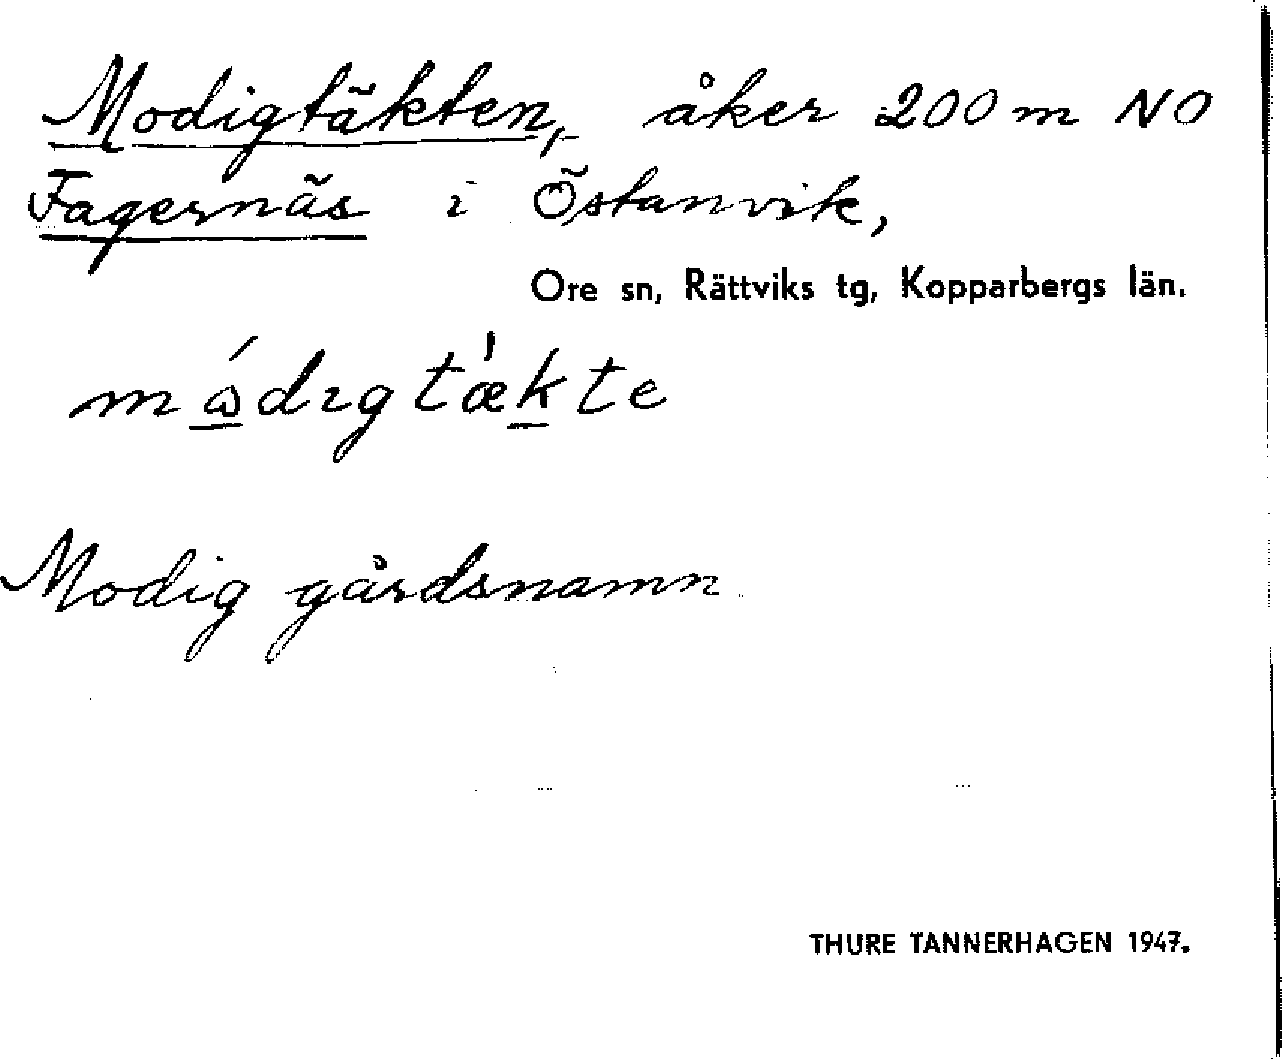 Modigtäkten, åker 200 m NO
Fagernäs i Östanvik,
Ore sn, Rättviks tg, Kopparbergs län.
mɷ́dıgtæ̍kte
Modig gårdsnamn
THURE TANNERHAGEN 1947.